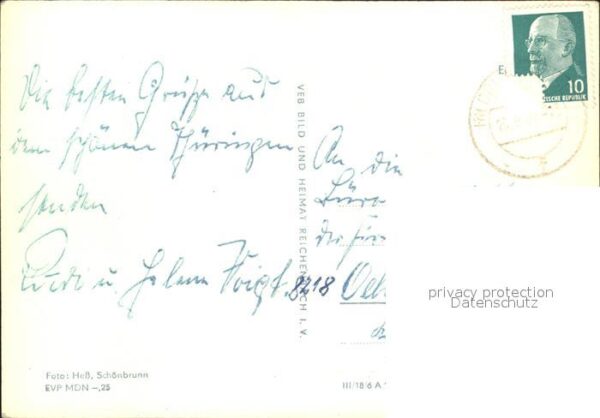 Die besten Grüße aus
dem schönen Thüringen
senden
Rudi u. Helene Voigt.
An die
der
8218
VEB BILD UND HEIMAT REICHENBACH I. V.
10
DEUTSCHE REPUBLIK
privacy protection
Datenschutz
Foto: Heß, Schönbrunn
EVP MDN –,25
III/18/6 A